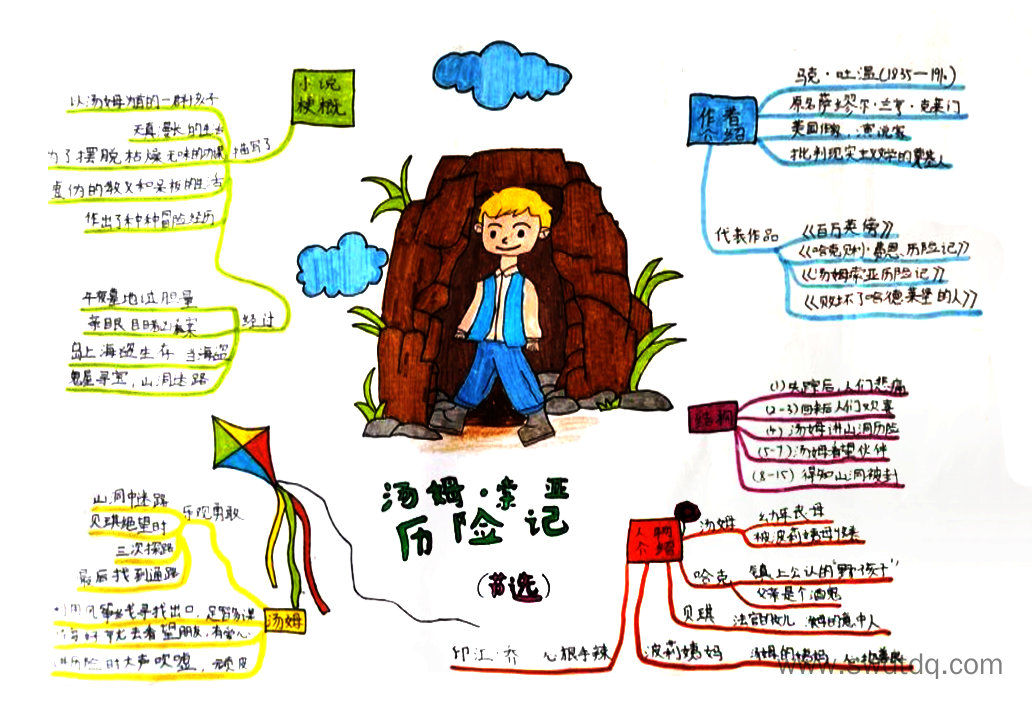 小说
梗概
描写了
以汤姆为首的一群孩子
天真漫长的生
为了摆脱枯燥无味的功课
虚伪的教义和呆板的生活
作出了种种冒险经历
经过
午夜墓地试胆量
亲眼目睹凶案
岛上海盗生存 当海盗
鬼屋寻宝,山洞迷路
作者
介绍
马克·吐温(1835—1910)
原名萨缪尔·兰亨·克莱门
美国作家、演说家
批判现实主义文学的奠基人
代表作品
《百万英傍》
《哈克贝利·费恩历险记》
《汤姆索亚历险记》
《败坏了哈德莱堡的人》
结构
(1)失踪后,人们悲痛
(2-3)回来后人们欢喜
(4)汤姆讲山洞历险
(5-7)汤姆看望伙伴
(8-15)得知山洞被封
汤姆·索亚
历险记
(节选)
汤姆
乐观勇敢
山洞中迷路
贝琪绝望时
三次探路
最后找到通路
利用风筝线寻找出口,足智多谋
好就去看望朋友,有爱心
讲历险时大声吹嘘,顽皮
人物
介绍
汤姆
幼年丧母
被波莉姨母收养
哈克
镇上公认的"野孩子"
父亲是个酒鬼
贝琪 法官的女儿 汤姆的意中人
波莉姨妈 汤姆的姨妈 心地善良
印江·乔 心狠手辣
www.swdtdq.com